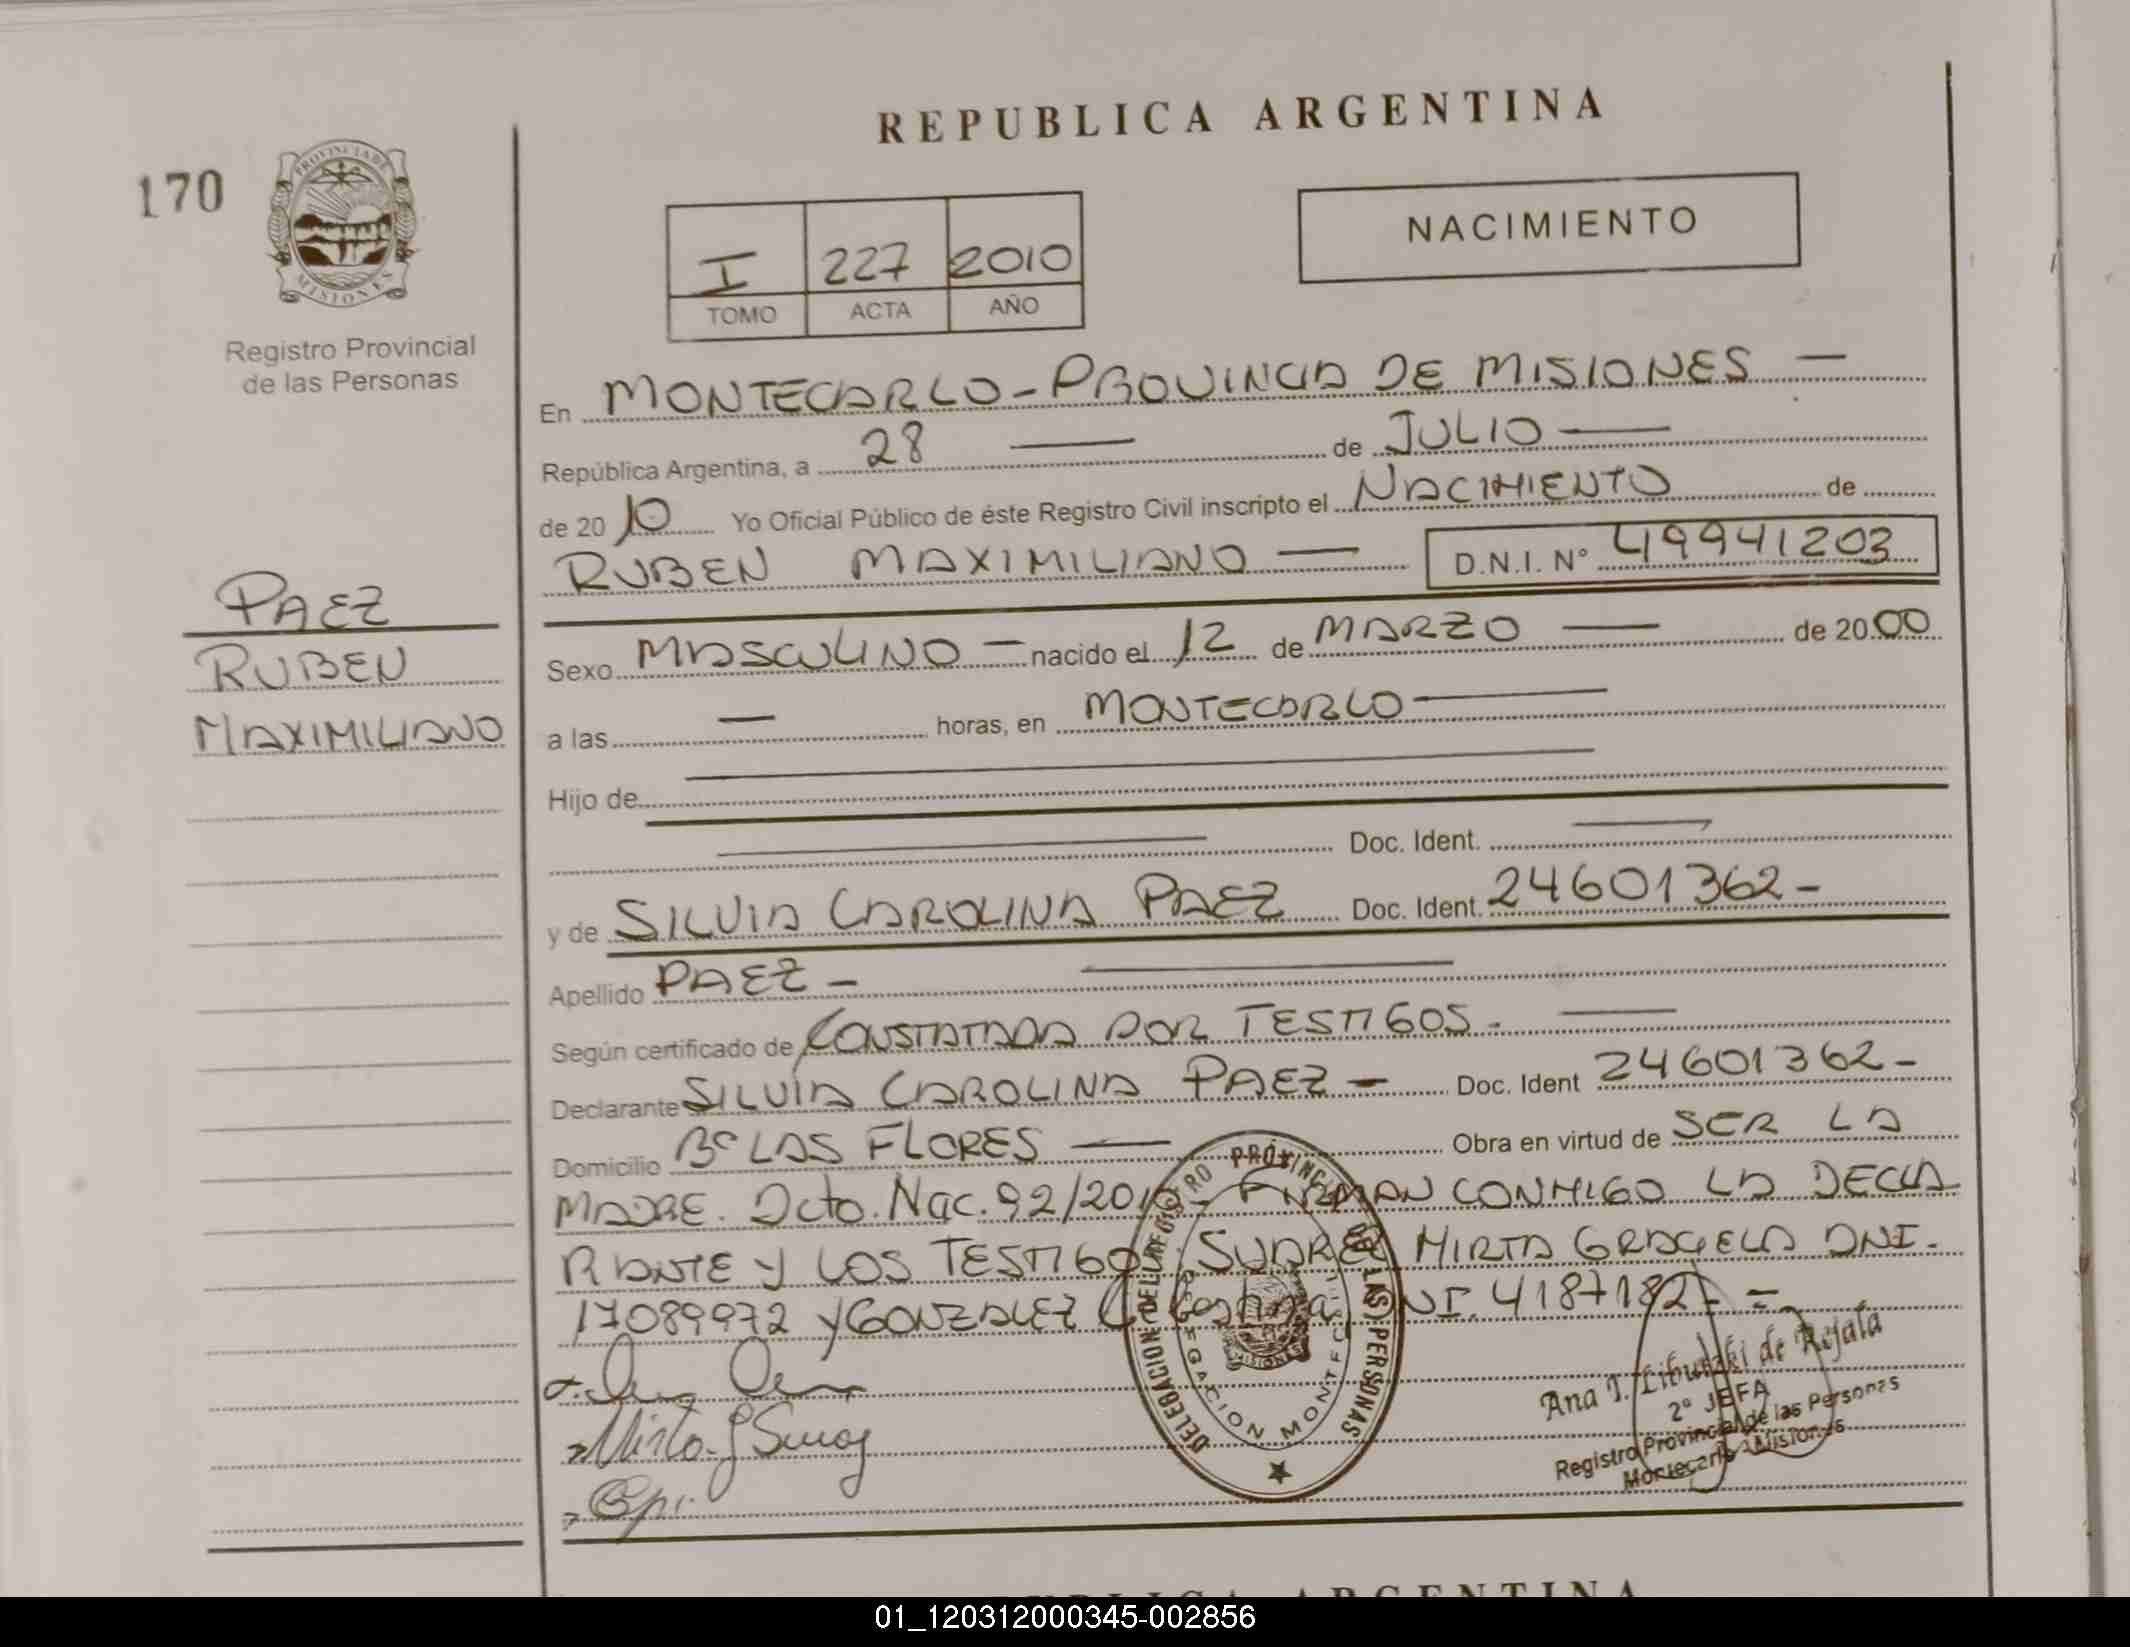 REPUBLICA ARGENTINA
170
PROVINCIA DE
MISIONES
Registro Provincial
de las Personas
I 227 2010
TOMO ACTA AÑO
NACIMIENTO
En MONTECARLO - PROVINCIA DE MISIONES —
República Argentina, a 28 — de JULIO —
de 20 10 Yo Oficial Público de éste Registro Civil inscripto el NACIMIENTO de
RUBEN MAXIMILIANO — D.N.I. N° 49941203
PAEZ
RUBEN
MAXIMILIANO
Sexo MASCULINO — nacido el 12 de MARZO — de 20 00
a las — horas, en MONTECARLO —
Hijo de —
— Doc. Ident. —
y de SILVIA CAROLINA PAEZ Doc. Ident. 24601362 -
Apellido PAEZ - —
Según certificado de CONSTATADA POR TESTIGOS. —
Declarante SILVIA CAROLINA PAEZ - Doc. Ident 24601362 -
Domicilio B° LAS FLORES — Obra en virtud de SER LA
MADRE. Dcto. Nac. 92/2010 - FIRMAN CONMIGO LA DECLA
RANTE Y LOS TESTIGOS: SUAREZ MIRTA GRACIELA DNI.
17089972 y GONZALEZ DNI. 4187182
DELEGACION DEL REGISTRO PROVINCIAL DE LAS PERSONAS
DELEGACION MONTECARLO
MISIONES
Mirta G Suarez
Ana T. de Rejala
2° JEFA
Registro Provincial de las Personas
Montecarlo - Misiones
REPUBLICA ARGENTINA
01_120312000345-002856